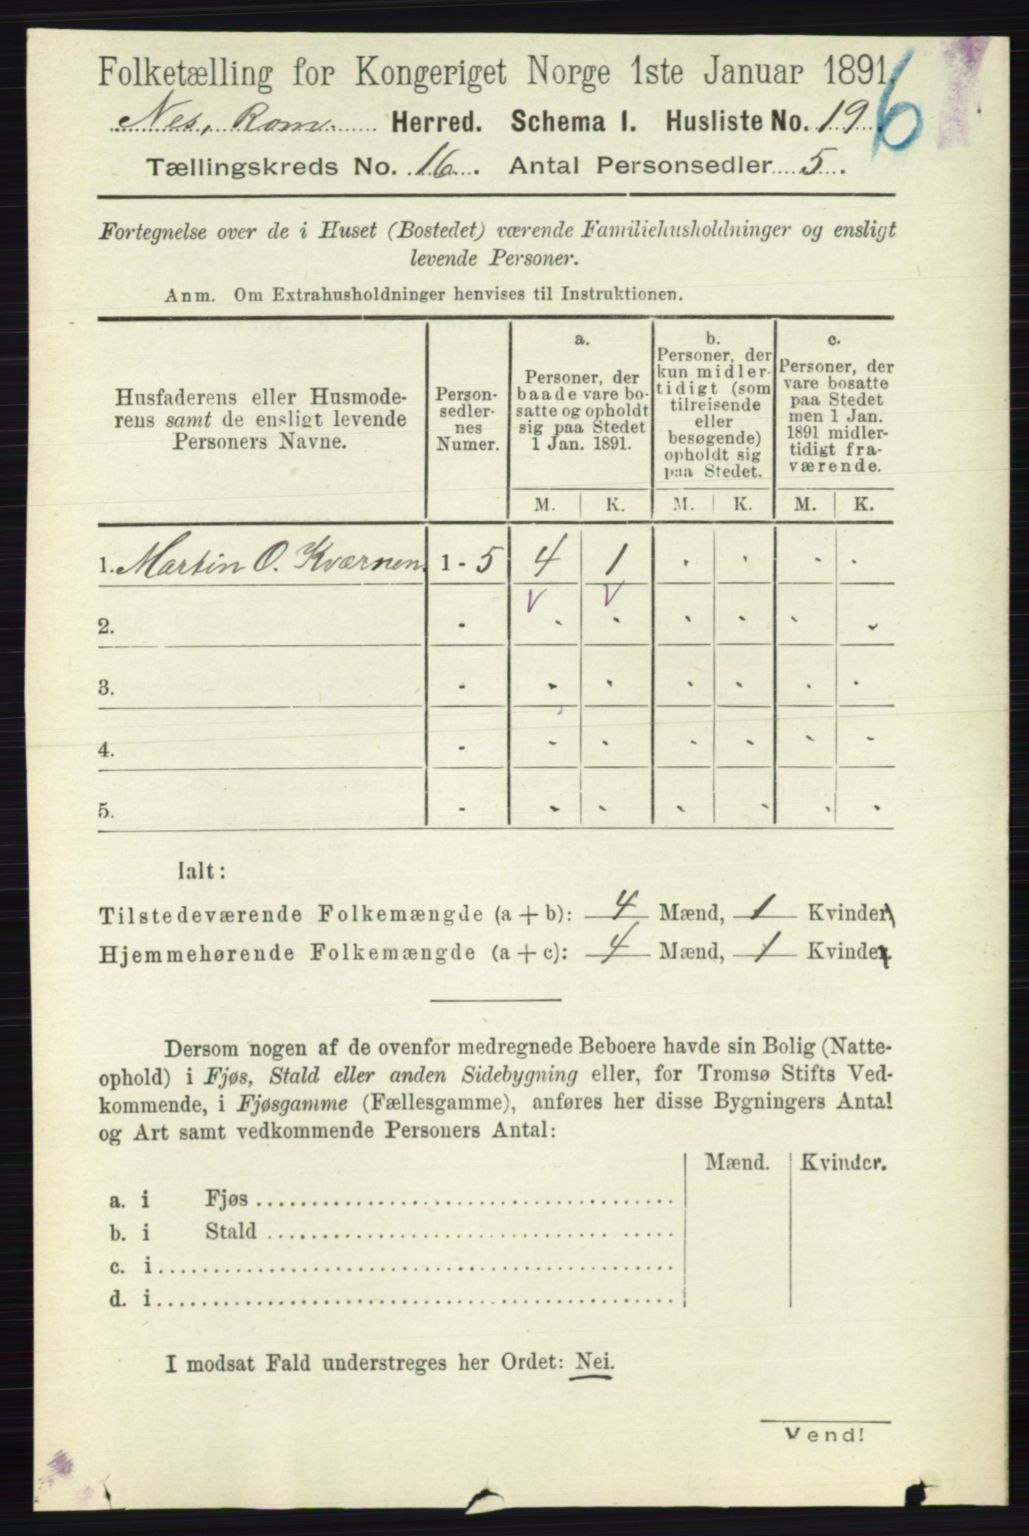 Folketælling for Kongeriget Norge 1ste Januar 1891.
6
Nes, Rom. Herred. Schema I. Husliste No. 19.
Tællingskreds No. 16. Antal Personsedler 5.
Fortegnelse over de i Huset (Bostedet) værende Familiehusholdninger og ensligt
levende Personer.
Anm. Om Extrahusholdninger henvises til Instruktionen.
Husfaderens eller Husmode-
rens samt de ensligt levende
Personers Navne.
Person-
sedler-
nes
Numer.
a.
Personer, der
baade vare bo-
satte og opholdt
sig paa Stedet
1 Jan. 1891.
b.
Personer, der
kun midler-
tidigt (som
tilreisende
eller
besøgende)
opholdt sig
paa Stedet.
c.
Personer, der
vare bosatte
paa Stedet
men 1 Jan.
1891 midler-
tidigt fra-
værende.
M. K. M. K. M. K.
1. Martin O. Kværnen 1 - 5 4 1
2. -
3. -
4. -
5. -
Ialt:
Tilstedeværende Folkemængde (a + b): 4 Mænd, 1 Kvinder
Hjemmehørende Folkemængde (a + c): 4 Mænd, 1 Kvinder.
Dersom nogen af de ovenfor medregnede Beboere havde sin Bolig (Natte-
ophold) i Fjøs, Stald eller anden Sidebygning eller, for Tromsø Stifts Ved-
kommende, i Fjøsgamme (Fællesgamme), anføres her disse Bygningers Antal
og Art samt vedkommende Personers Antal:
Mænd. Kvinder.
a. i Fjøs
b. i Stald
c. i
d. i
I modsat Fald understreges her Ordet: Nei.
Vend!